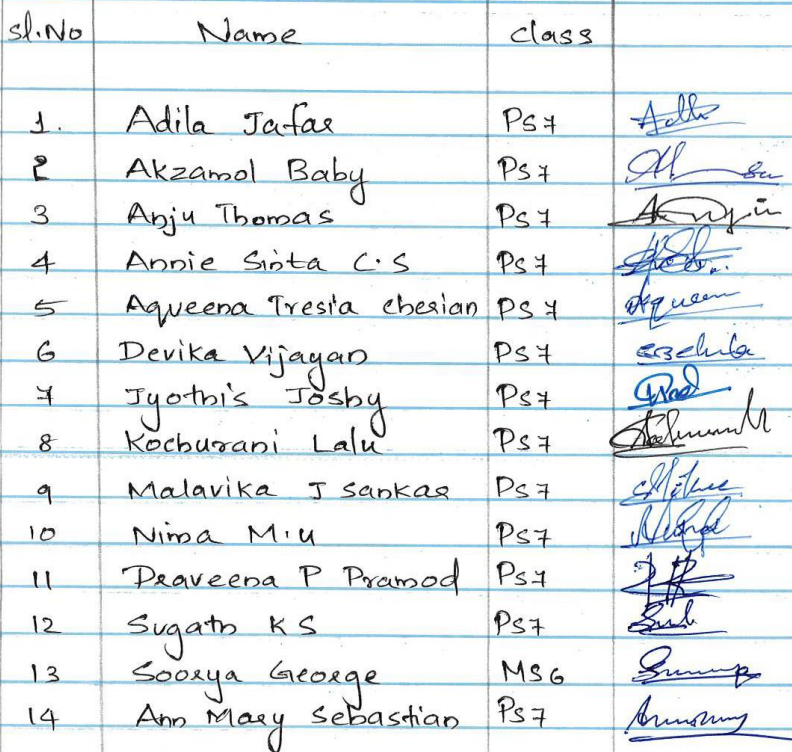 Sl.No Name Class
1. Adila Jafar PS7
2 Akzamol Baby PS7
3 Anju Thomas PS7
4 Annie Sinta C.S PS7
5 Aqveena Tresia cherian PS7
6 Devika Vijayan PS7
7 Jyothis Josby PS7
8 Kochurani Lalu PS7
9 Malavika J Sankar PS7
10 Nima M.U PS7
11 Praveena P Pramod PS7
12 Sugath KS PS7
13 Soorya George MS6
14 Ann Mary Sebastian PS7